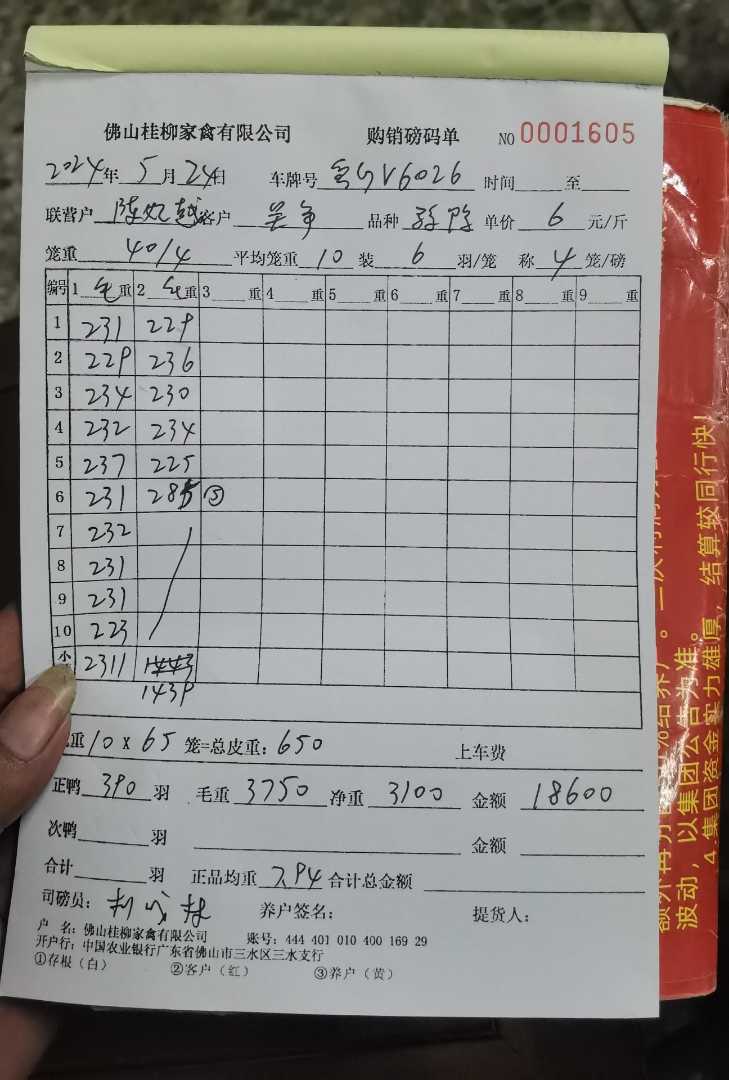 佛山桂柳家禽有限公司 购销磅码单 NO 0001605
2024年 5 月 24日 车牌号 粤GV6026 时间 至
联营户 陈妃越 客户 吴争 品种 单价 6 元/斤
笼重 40/4 平均笼重 10 装 6 羽/笼 称 4 笼/磅
编号 1 毛 重 2 毛 重 3 重 4 重 5 重 6 重 7 重 8 重 9 重
1 231 229
2 229 236
3 234 230
4 232 234
5 237 225
6 231 285 ⑤
7 232
8 231
9 231
10 223
小 2311 1443
1439
重 10 x 65 笼=总皮重: 650 上车费
正鸭 390 羽 毛重 3750 净重 3100 金额 18600
次鸭 羽 金额
合计 羽 正品均重 7.94 合计总金额
司磅员: 养户签名: 提货人:
户 名: 佛山桂柳家禽有限公司 账号: 444 401 010 400 169 29
开户行: 中国农业银行广东省佛山市三水区三水支行
①存根（白） ②客户（红） ③养户（黄）
波动，以集团公告为准。
4.集团资金实力雄厚，结算较同行快!